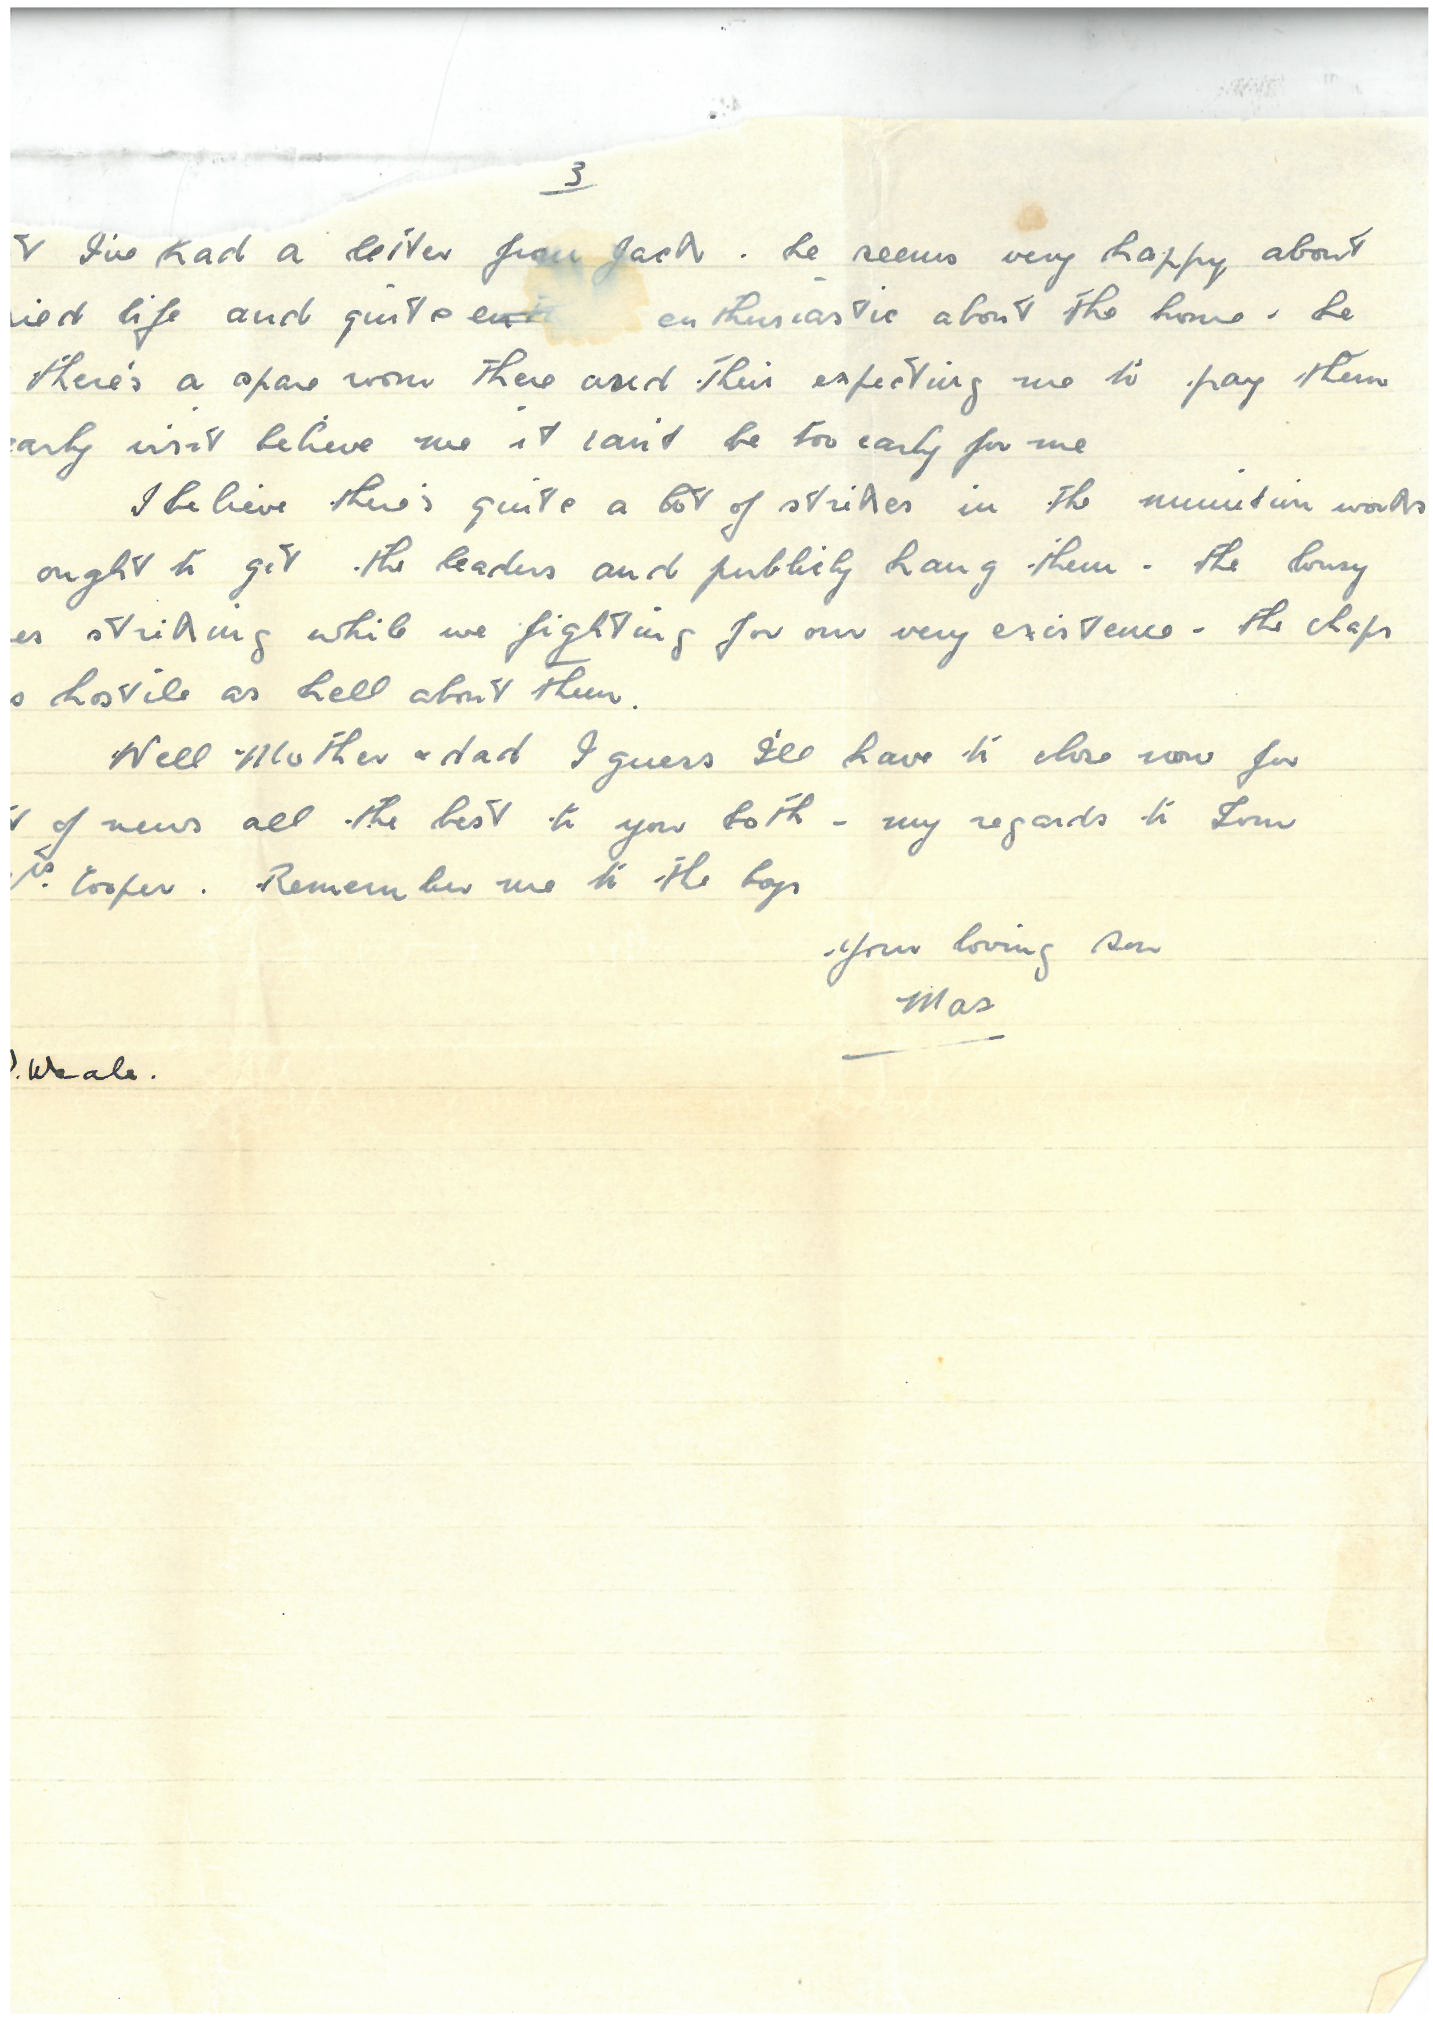 3
I've had a letter from Jack. he seems very happy about
ried life and quite enthusiastic about the home. he
there's a spare room there and their expecting me to pay them
early visit believe me it can't be too early for me
I believe there's quite a lot of strikes in the munition works
ought to get the leaders and publicly hang them - the lousy
es striking while we fighting for our very existence - the chaps
hostile as hell about them.
Well Mother & dad I guess I'll have to close now for
t of news all the best to you both - my regards to Tom
Cooper. Remember me to the boys
Your loving son
Max
. Weale.